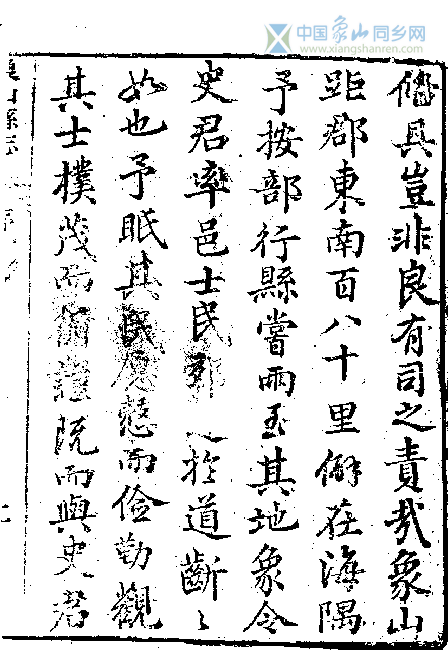 中国象山同乡网
www.xiangshanren.com
偹具豈非良有司之責哉象山
距郡東南百八十里僻在海隅
予按部行縣嘗兩至其地象令
史君率邑士民扵道齗〻
如也予眂其民愨而儉勤觀
其士樸茂而既而與史君
縣志